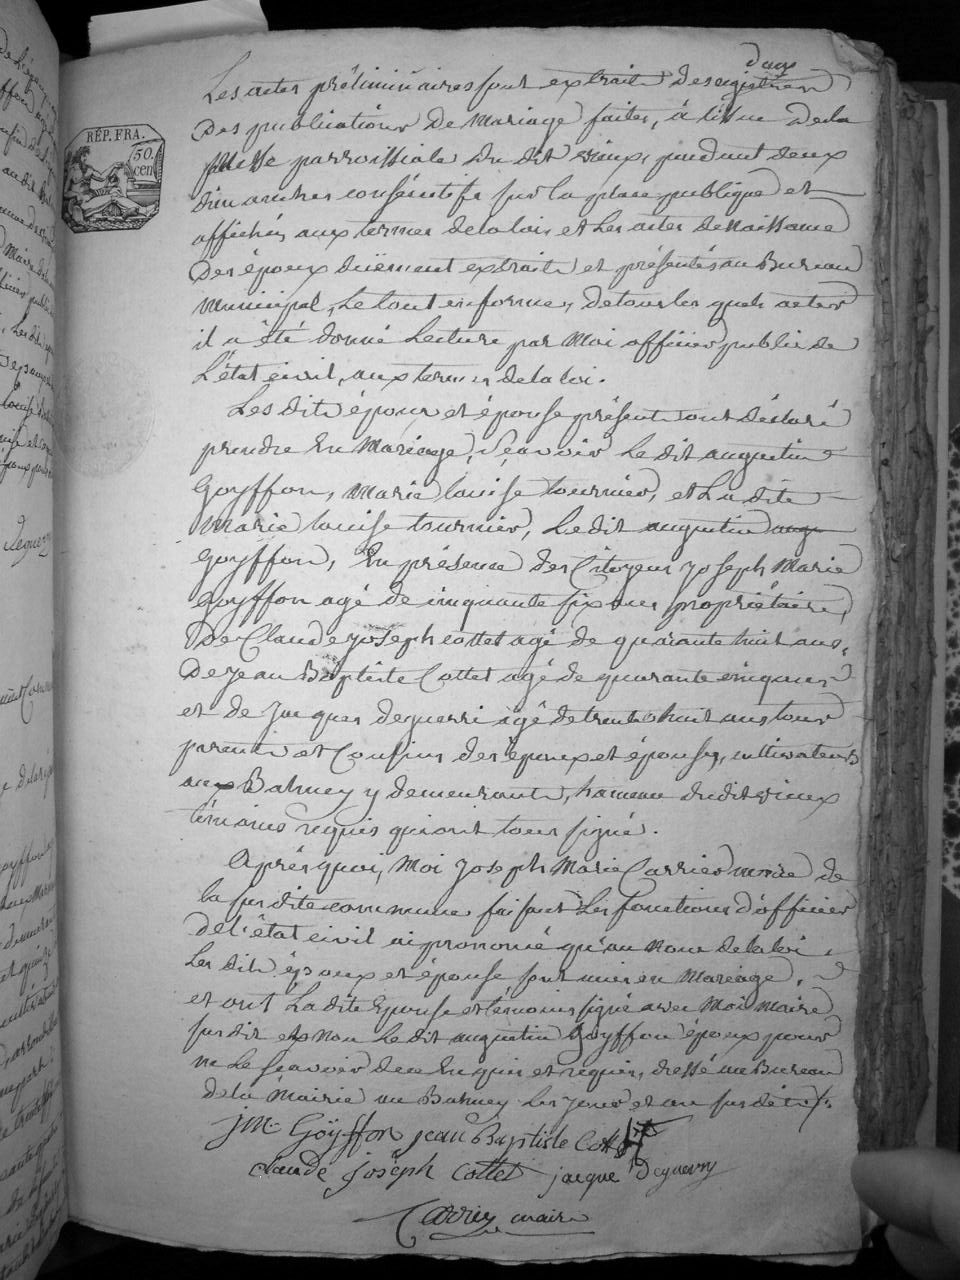 dans
Les actes préliminaires sont extraits des registres
RÉP. FRA.
50.
cen
des publications de mariage faites, à lissue de la
Messe parroissiale du dit vieux, pendant deux
dimanches consécutifs sur la place publique et
affichés aux termes de la loi, et les actes de Naissance
des époux duëment extraits et présentés au Bureau
municipal, Le tout en forme, de tous les quels actes
il a été donné Lecture par Moi officier public de
L'état civil, aux termes de la loi.
Les dits époux et épouse présents ont déclaré
prendre En Mariage, Sçavoir Le dit augustin
Goyffon, Marie louise tournier, et La dite
Marie louise tournier, Le dit augustin
Goyffon, En présence des Citoyens Joseph Marie
Goyffon agé de cinquante six ans propriétaire,
De Claude Joseph cottet agé de quarante huit ans,
De Jean Baptiste Cottet agé de quarante cinq ans
et de Jacques deguerri agé de trente huit ans tous
parents et Cousins des époux et épouse, cultivateurs
aux Balmey y demeurants, hameau dudit vieux
témoins requis qui ont tous signé.
Après quoi, Moi Joseph Marie Carrier maire de
la susdite commune faisant Les fonctions d'officier
de l'état civil ai prononcé qu'au nom de la loi
Les dits époux et épouse, sont unis en Mariage,
et ont La dite Epouse et temoins signé avec Moi Maire
susdit et non Le dit augustin Goyffon époux pour
ne Le sçavoir de ce Enquis et requis, dressé au Bureau
de la Mairie au Balmey Les Jour et an susdits
J M Goÿffon jean Baptiste Cottet
claude joseph Cottet jacque deguerry
Carrier maire